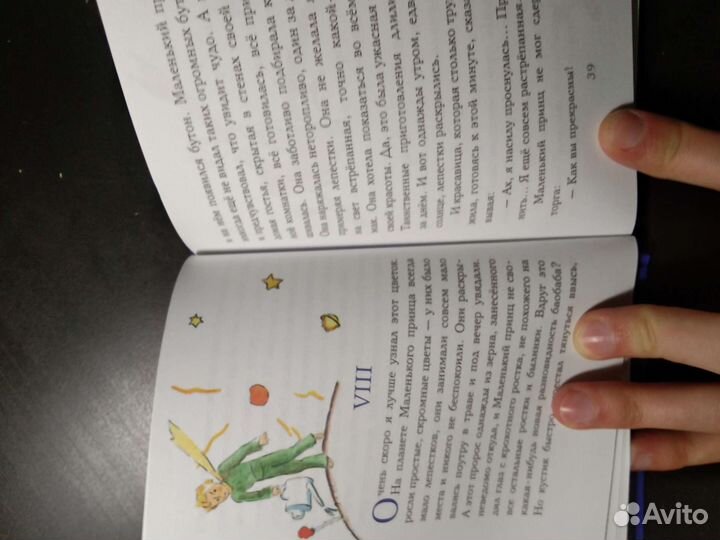 VIII
Очень скоро я лучше узнал этот цветок.
На планете Маленького принца всегда
росли простые, скромные цветы — у них было
мало лепестков, они занимали совсем мало
места и никого не беспокоили. Они раскры-
вались поутру в траве и под вечер увядали.
А этот пророс однажды из зерна, занесённого
неведомо откуда, и Маленький принц не сво-
дил глаз с крохотного ростка, не похожего на
все остальные ростки и былинки. Вдруг это
какая-нибудь новая разновидность баобаба?
Но кустик быстро перестал тянуться ввысь,
на нём появился бутон. Маленький
никогда ещё не видал таких огромных
предчувствовал, что увидит чудо. А
гостья, скрытая в стенах своей
комнатки, всё готовилась, всё
Она заботливо подбирала
Она наряжалась неторопливо, один за
примеряя лепестки. Она не желала
на свет встрёпанная, точно какой-
мак. Она хотела показаться во всём
своей красоты. Да, это была ужасная
Таинственные приготовления
за днём. И вот однажды утром,
солнце, лепестки раскрылись.
И красавица, которая столько
жила, готовясь к этой минуте,
вывая:
– Ах, я насилу проснулась...
нить... Я ещё совсем растрёпанная.
Маленький принц не мог
торга:
– Как вы прекрасны!
39
Avito